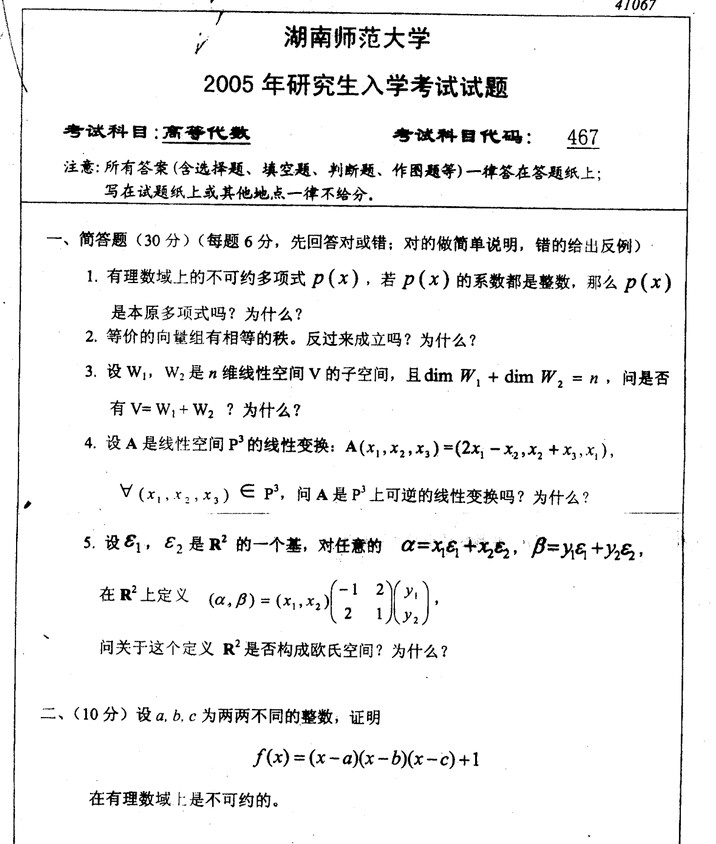 41067
湖南师范大学
2005 年研究生入学考试试题
考试科目：高等代数 考试科目代码： 467
注意：所有答案(含选择题、填空题、判断题、作图题等)一律答在答题纸上；
写在试题纸上或其他地点一律不给分。
一、简答题（30 分）（每题 6 分，先回答对或错；对的做简单说明，错的给出反例）
1. 有理数域上的不可约多项式 p(x)，若 p(x) 的系数都是整数，那么 p(x)
是本原多项式吗？为什么？
2. 等价的向量组有相等的秩。反过来成立吗？为什么？
3. 设 W₁，W₂ 是 n 维线性空间 V 的子空间，且 dim W₁ + dim W₂ = n，问是否
有 V= W₁ + W₂ ？为什么？
4. 设 A 是线性空间 P³ 的线性变换：A(x₁,x₂,x₃)=(2x₁ − x₂,x₂ + x₃,x₁)，
∀ (x₁,x₂,x₃) ∈ P³，问 A 是 P³ 上可逆的线性变换吗？为什么？
5. 设 ε₁，ε₂ 是 R² 的一个基，对任意的 α=x₁ε₁+x₂ε₂，β=y₁ε₁+y₂ε₂，
在 R² 上定义 (α,β) = (x₁,x₂)(−1 2; 2 1)(y₁; y₂)，
问关于这个定义 R² 是否构成欧氏空间？为什么？
二、（10 分）设 a, b, c 为两两不同的整数，证明
f(x) = (x − a)(x − b)(x − c) + 1
在有理数域上是不可约的。